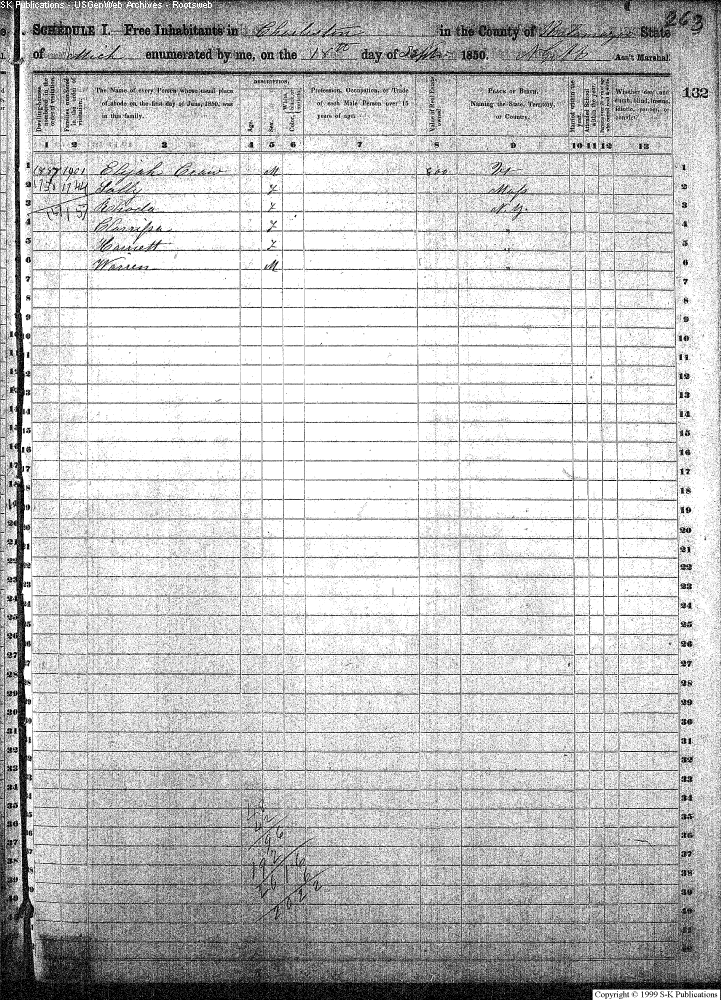 SK Publications - USGenWeb Archives - Rootsweb
263
SCHEDULE I. Free Inhabitants in Charleston in the County of Kalamazoo State
of Mich enumerated by me, on the 18th day of Septr 1850. Ass't Marshal.
132
Dwelling-houses numbered in the order of visitation.
Families numbered in the order of visitation.
The Name of every Person whose usual place of abode on the first day of June, 1850, was in this family.
DESCRIPTION.
Age.
Sex.
Color
Profession, Occupation, or Trade of each Male Person over 15 years of age.
Value of Real Estate owned.
PLACE OF BIRTH. Naming the State, Territory, or Country.
Married within the year.
Attended School within the year.
Whether deaf and dumb, blind, insane, idiotic, pauper, or convict.
1 2 3 4 5 6 7 8 9 10 11 12 13
1 1901 Elijah M 800 Vt 1
2 Sally F Mass 2
3 Rhoda F N.Y. 3
4 Clarissa F " 4
5 Harriett F " 5
6 Warren M " 6
7 7
8 8
9 9
10 10
11 11
12 12
13 13
14 14
15 15
16 16
17 17
18 18
19 19
20 20
21 21
22 22
23 23
24 24
25 25
26 26
27 27
28 28
29 29
30 30
31 31
32 32
33 33
34 34
35 35
36 36
37 37
38 38
39 39
40 40
96
192
2016
6
2022
Copyright © 1999 S-K Publications